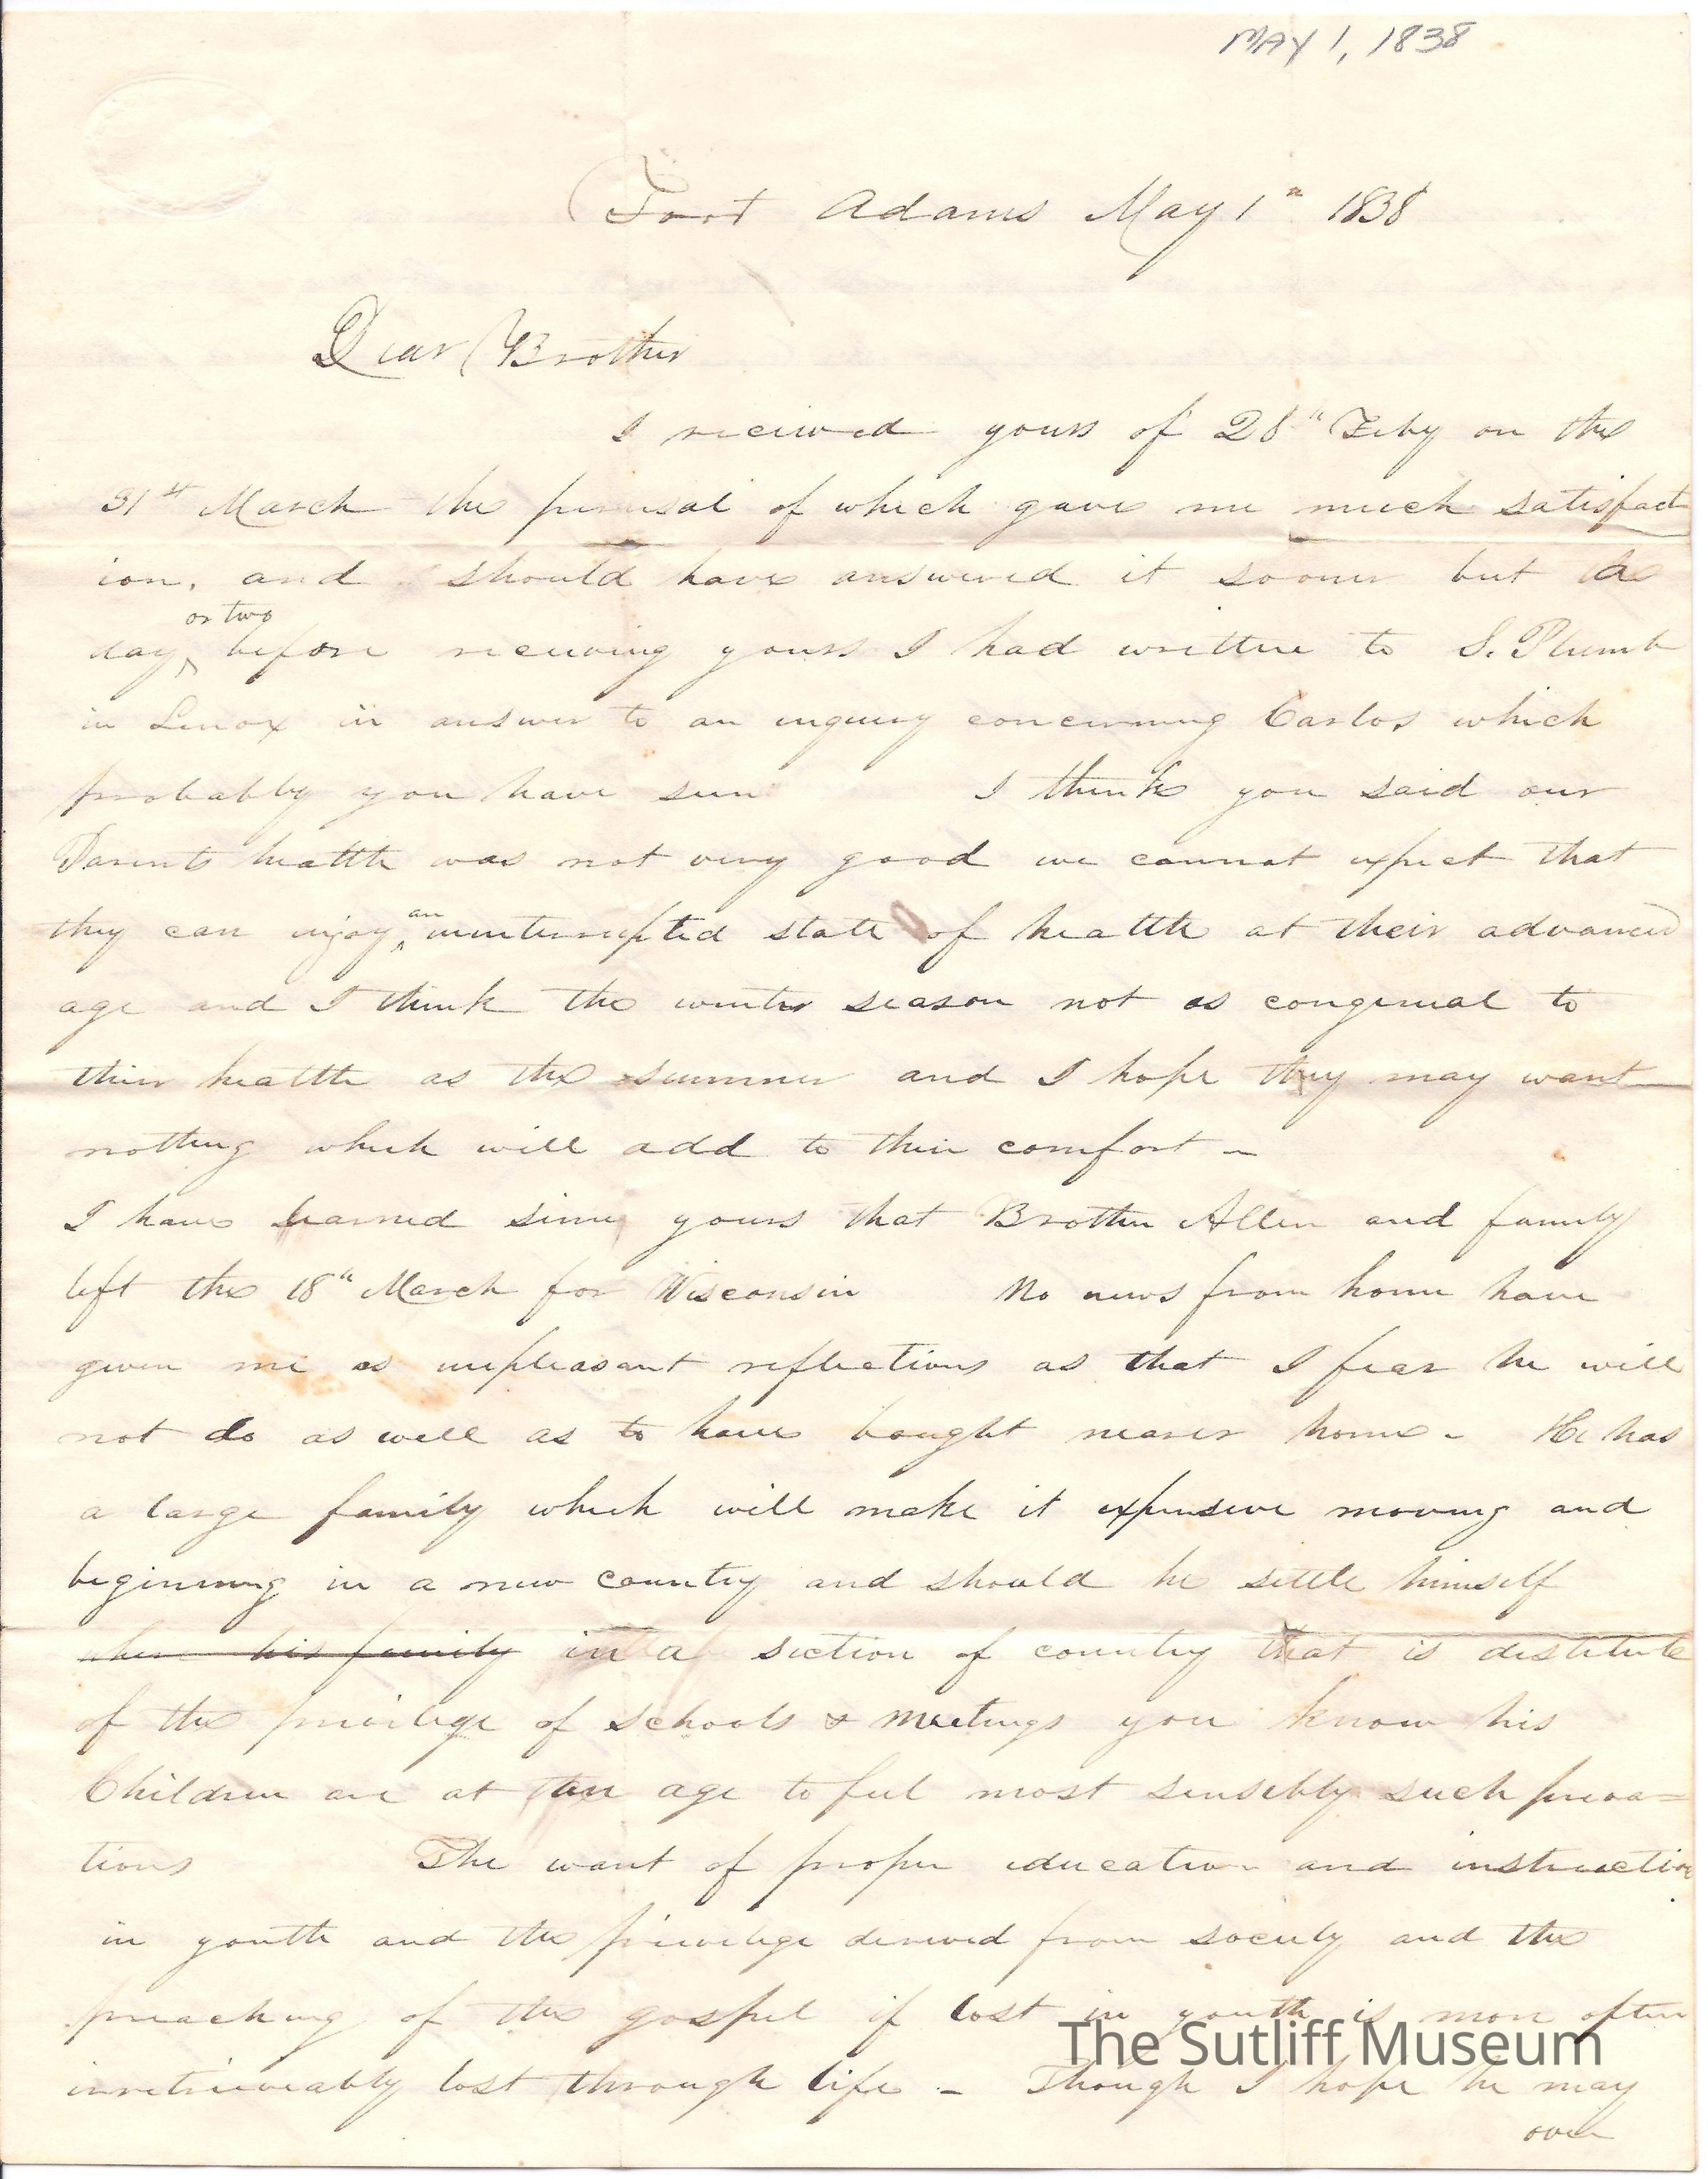 MAY 1, 1838
Fort Adams May 1st 1838
Dear Brother
I received yours of 28th Feby on the
31st March the perusal of which gave me much satisfact
ion, and should have answered it sooner but a
or two
day before receiving yours I had written to S. Plumb
in Lenox in answer to an inquiry concerning Carlos which
probably you have seen I think you said our
Parents health was not very good we cannot expect that
an
they can enjoy uninterrupted state of health at their advanced
age and I think the winter season not as congenial to
their health as the summer and I hope they may want
nothing which will add to their comfort –
I have learned since yours that Brother Allen and family
left the 18th March for Wisconsin No news from home have
given me as unpleasant reflections as that I fear he will
not do as well as to have bought nearer home – He has
a large family which will make it expensive moving and
beginning in a new country and should he settle himself
where his family in a section of country that is destitute
of the privilege of schools & meetings you know his
Children are at an age to feel most sensibly such priva=
tions The want of proper education and instruction
in youth and the privilege derived from society and the
preaching of the gospel if lost in youth is more often
irretrieveably lost through life – Though I hope he may
over
The Sutliff Museum